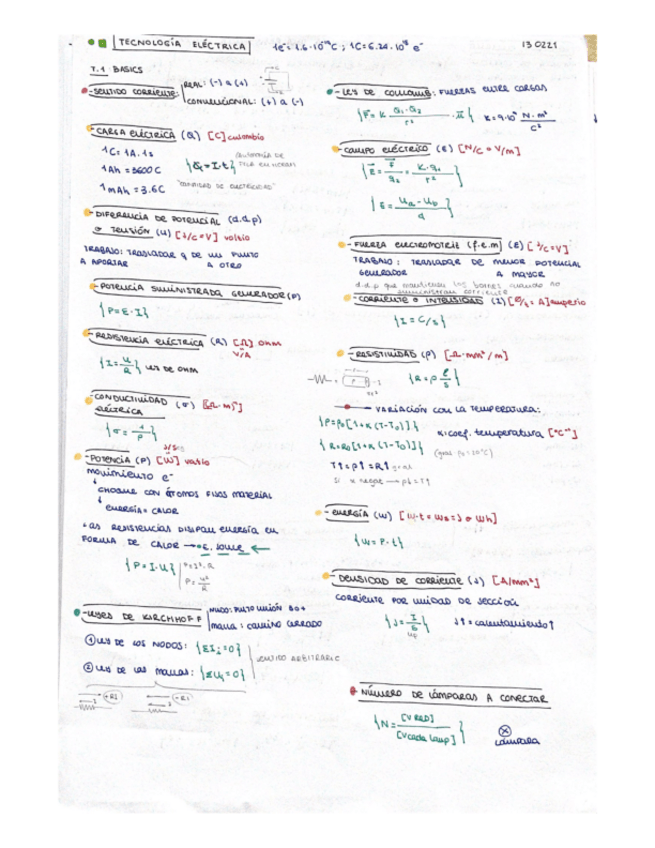 TECNOLOGÍA ELÉCTRICA
1e⁻ = 1.6·10⁻¹⁹C ; 1C = 6.24·10¹⁸ e⁻
130221
T.1 BASICS
- SENTIDO CORRIENTE:
REAL: (-) a (+)
CONVENCIONAL: (+) a (-)
- CARGA ELÉCTRICA (Q) [C] culombio
1C = 1A·1s
1Ah = 3600 C
1mAh = 3.6C
{Q = I·t}
"CANTIDAD DE ELECTRICIDAD"
- DIFERENCIA DE POTENCIAL (d.d.p)
o TENSIÓN (U) [J/C = V] voltio
TRABAJO: TRASLADAR q DE UN PUNTO
A APORTAR A OTRO
- POTENCIA SUMINISTRADA GENERADOR (P)
{P = E·I}
- RESISTENCIA ELÉCTRICA (R) [Ω] ohm
V/A
{I = U/R} LEY DE OHM
- CONDUCTIVIDAD (σ) [(Ω·m)⁻¹]
ELÉCTRICA
{σ = 1/ρ}
J/s
- POTENCIA (P) [W] vatio
movimiento e⁻
CHOQUE CON ÁTOMOS FIJOS MATERIAL
ENERGÍA = CALOR
LAS RESISTENCIAS DISIPAN ENERGÍA EN
FORMA DE CALOR → E. JOULE ←
{P = I·U}
P = I²·R
P = U²/R
- LEYES DE KIRCHHOFF
NUDO: PUNTO UNIÓN 3 o +
malla: CAMINO CERRADO
① LEY DE LOS NODOS: {ΣIᵢ = 0}
② LEY DE LAS mallas: {ΣUᵢ = 0}
SENTIDO ARBITRARIO
+RI
-RI
- LEY DE COULOMB: FUERZAS ENTRE CARGAS
{F = K Q₁·Q₂/r² · u}
K = 9·10⁹ N·m²/C²
- CAMPO ELÉCTRICO (E) [N/C = V/m]
{E = F/q₂ = K·q₁/r²}
{E = Ua - Ub/d}
- FUERZA ELECTROMOTRIZ (f.e.m) (E) [J/C = V]
TRABAJO: TRASLADAR DE MENOR POTENCIAL
GENERADOR A MAYOR
d.d.p que mantienen los bornes cuando no
suministran corriente
- CORRIENTE o INTENSIDAD (I) [C/s = A] amperio
{I = C/s}
- RESISTIVIDAD (ρ) [Ω·mm²/m]
{R = ρ ℓ/S}
→ VARIACIÓN CON LA TEMPERATURA:
{ρ = ρ₀[1+α(T-T₀)]}
{R = R₀[1+α(T-T₀)]}
α: coef. temperatura [°C⁻¹]
T↑ = ρ↑ = R↑
- ENERGÍA (W) [W·t = Ws = J o Wh]
{W = P·t}
- DENSIDAD DE CORRIENTE (J) [A/mm²]
CORRIENTE POR UNIDAD DE SECCIÓN
{J = I/S}
J↑ = calentamiento↑
- NÚMERO DE LÁMPARAS A CONECTAR
{N = [V RED]/[V cada lamp]}
LÁMPARA